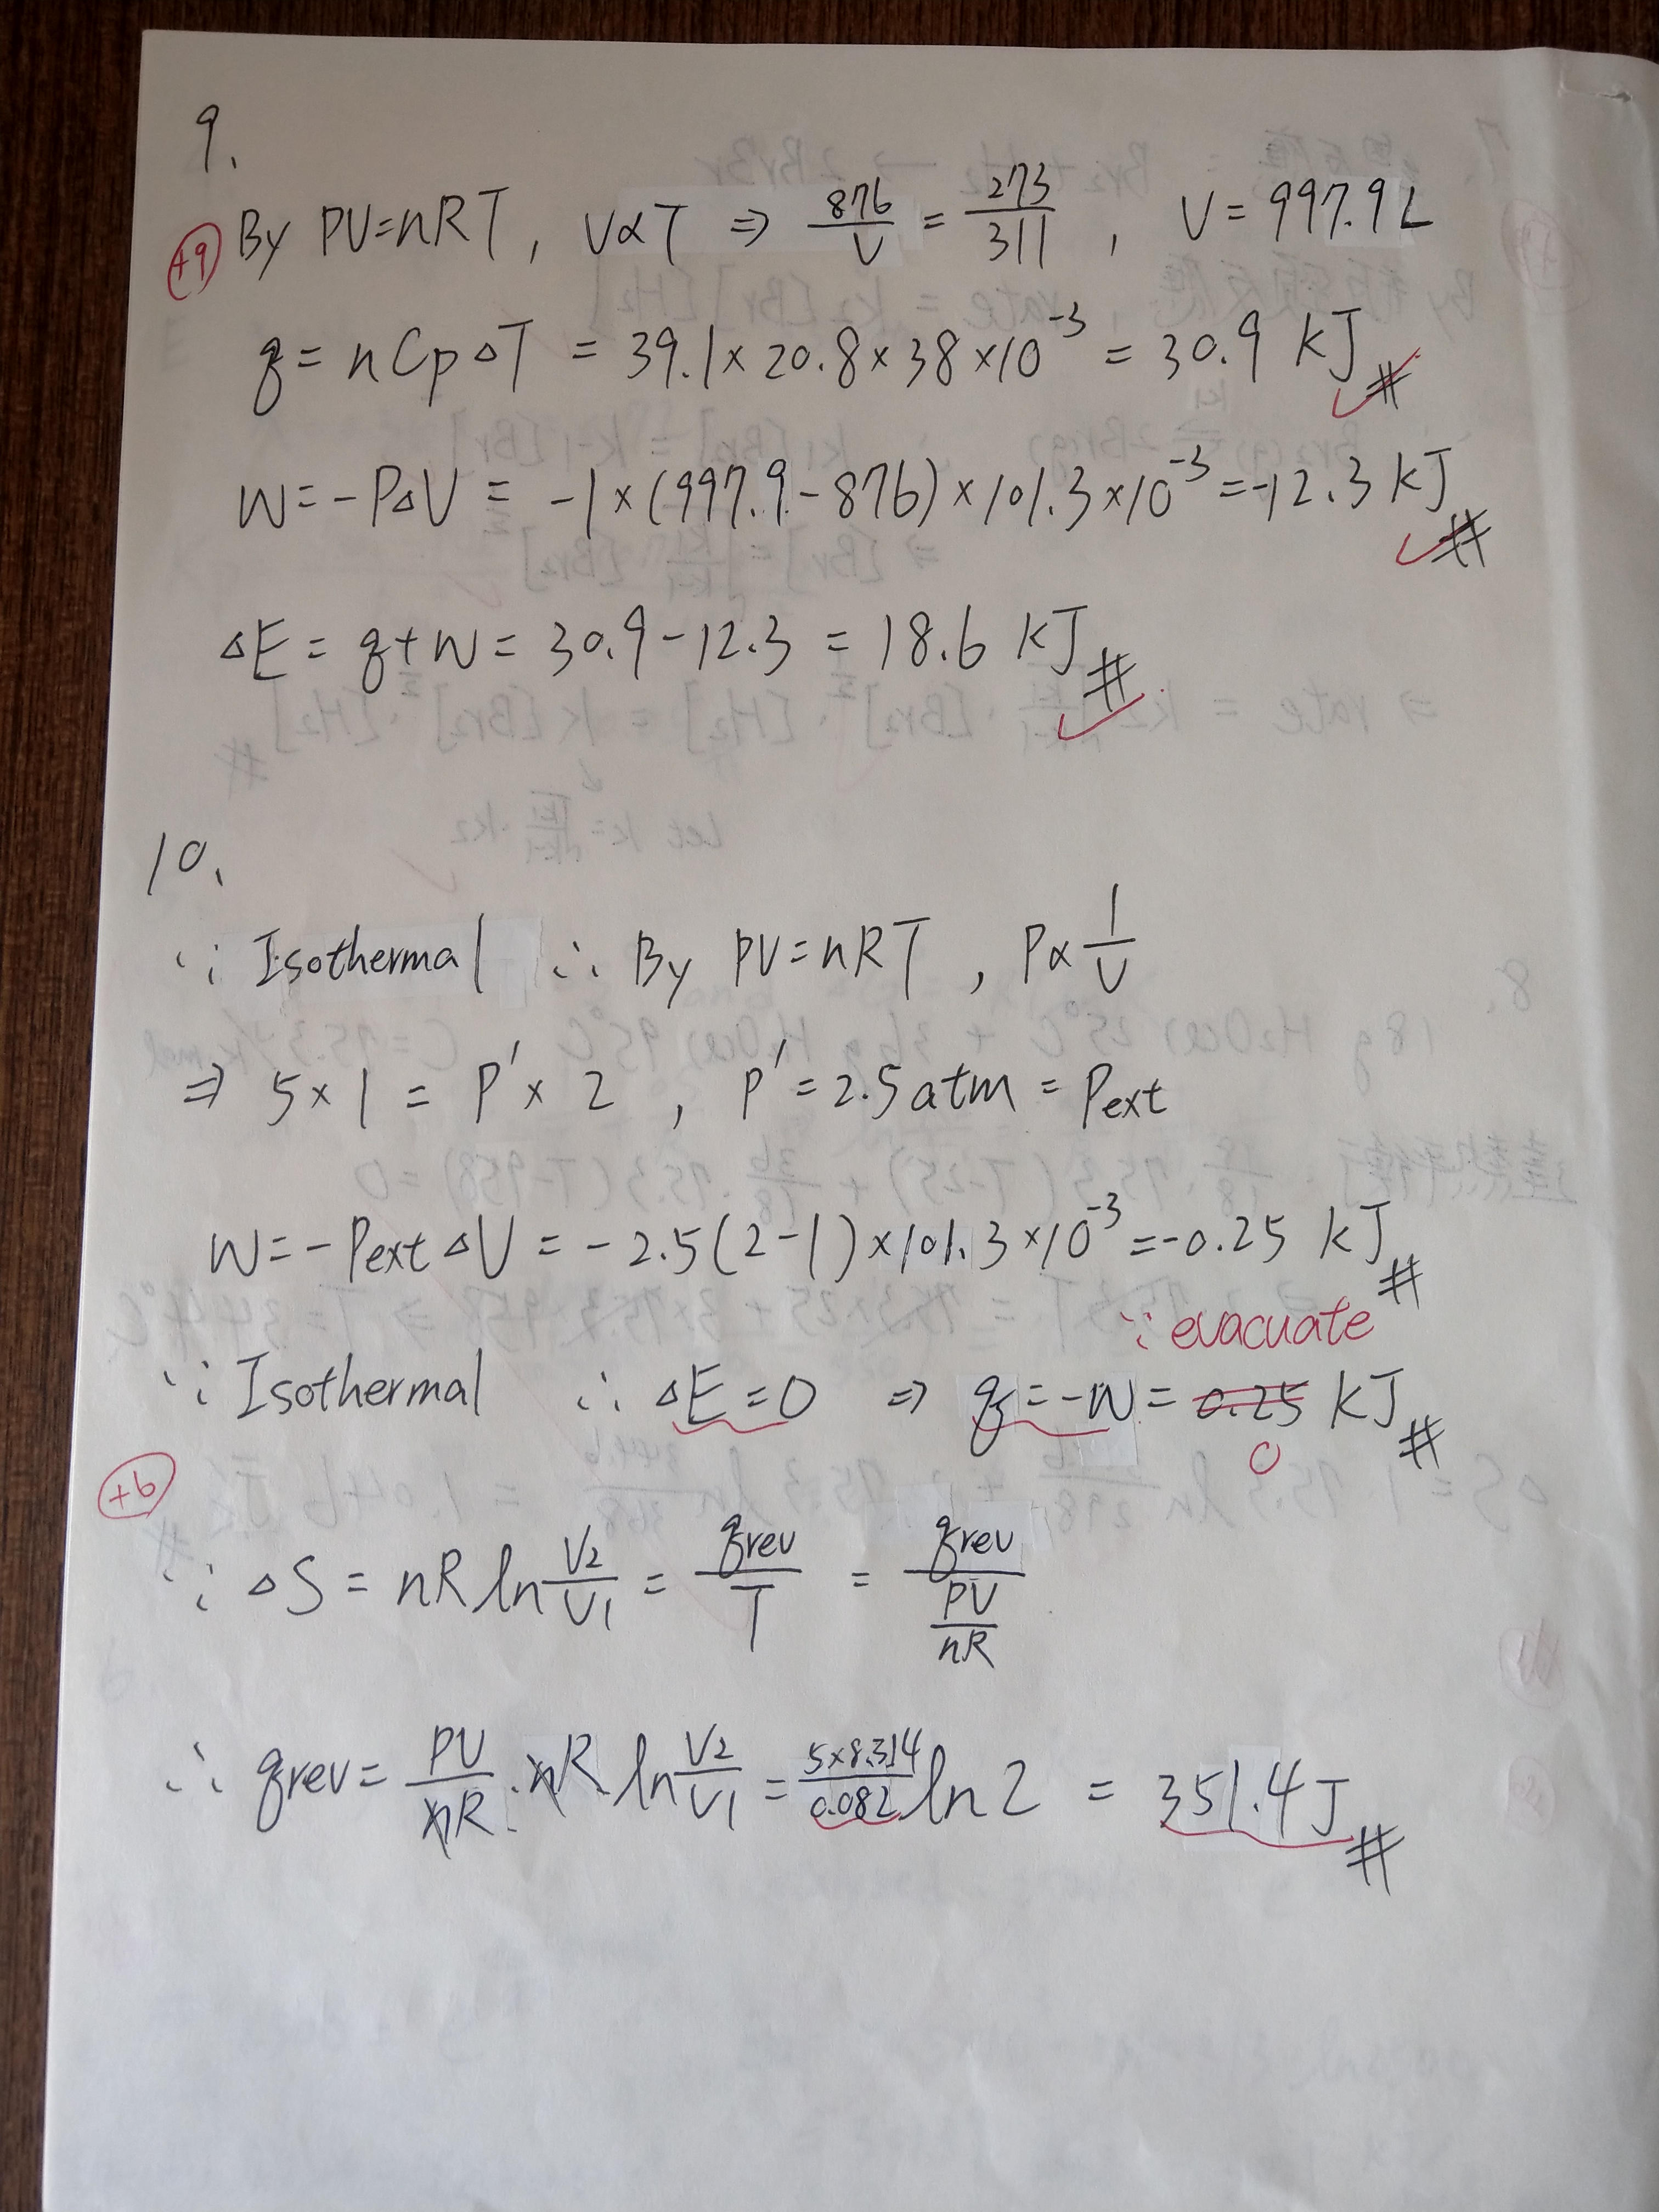 9.
+9 By PV=nRT, V∝T ⇒ 876/V = 273/311, V=997.9L
q = nCp△T = 39.1×20.8×38×10⁻³ = 30.9 kJ #
W=-P△V = -1×(997.9-876)×101.3×10⁻³=-12.3 kJ #
△E = q+W = 30.9-12.3 = 18.6 kJ #
10.
∵ Isothermal ∴ By PV=nRT, P∝1/V
⇒ 5×1 = P'×2, P'=2.5atm = Pext
W=-Pext△V = -2.5(2-1)×101.3×10⁻³=-0.25 kJ #
∵ evacuate
∵ Isothermal ∴ △E=0 ⇒ q=-W= 0.25 kJ #
0
+6
∵ △S = nR ln V2/V1 = qrev/T = qrev/(PV/nR)
∴ qrev = PV/nR · nR ln V2/V1 = 5×8.314/0.082 ln2 = 351.4J #